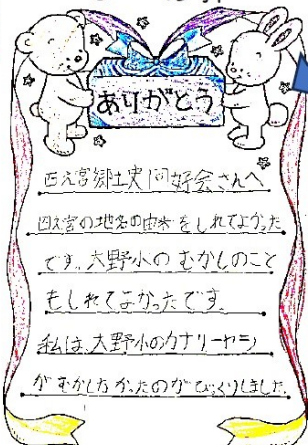 ありがとう
四え宮郷土史同好会さんへ
四え宮の地名の由来をしれてよかった
です。大野小のむかしのこと
もしれてよかったです。
私は、大野小のカナリーヤシ
がむかしたかったのがびっくりしました。